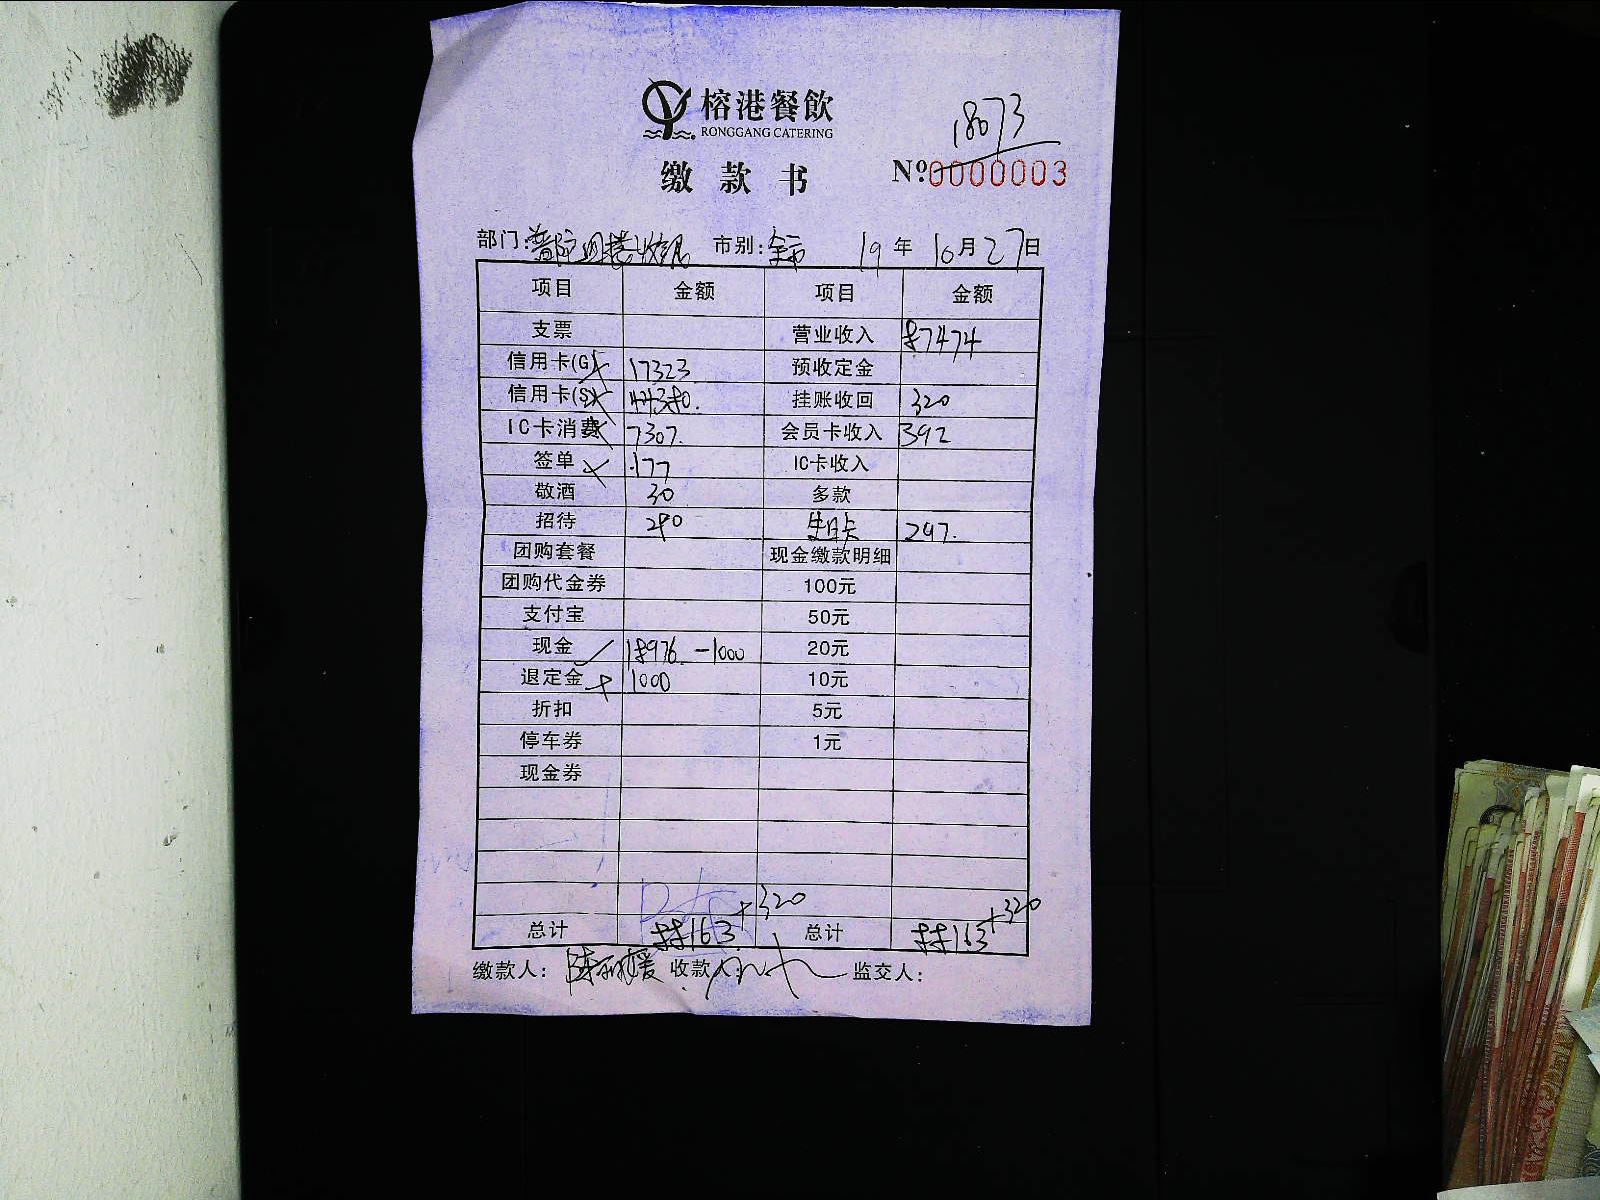 榕港餐飲
RONGGANG CATERING
18073
缴款书
Nº0000003
部门: 市别:全市 19年10月27日
项目 金额 项目 金额
支票 营业收入 87474
信用卡(G) 17323 预收定金
信用卡(S) 44380. 挂账收回 320
IC卡消费 7307. 会员卡收入 392
签单 177 IC卡收入
敬酒 30 多款
招待 290 生日卡 297.
团购套餐 现金缴款明细
团购代金券 100元
支付宝 50元
现金 18976 -1000 20元
退定金 1000 10元
折扣 5元
停车券 1元
现金券
+320 +320
总计 88163 总计 88163
缴款人: 收款人: 监交人: